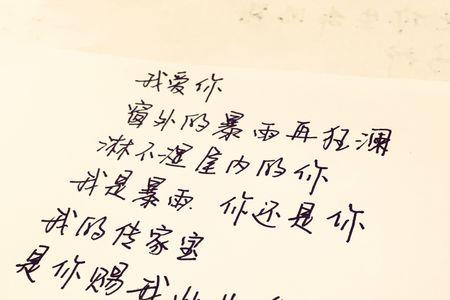 我爱你
窗外的暴雨再狂澜
淋不湿屋内的你
我是暴雨 你还是你
我的传家宝
是你赐我